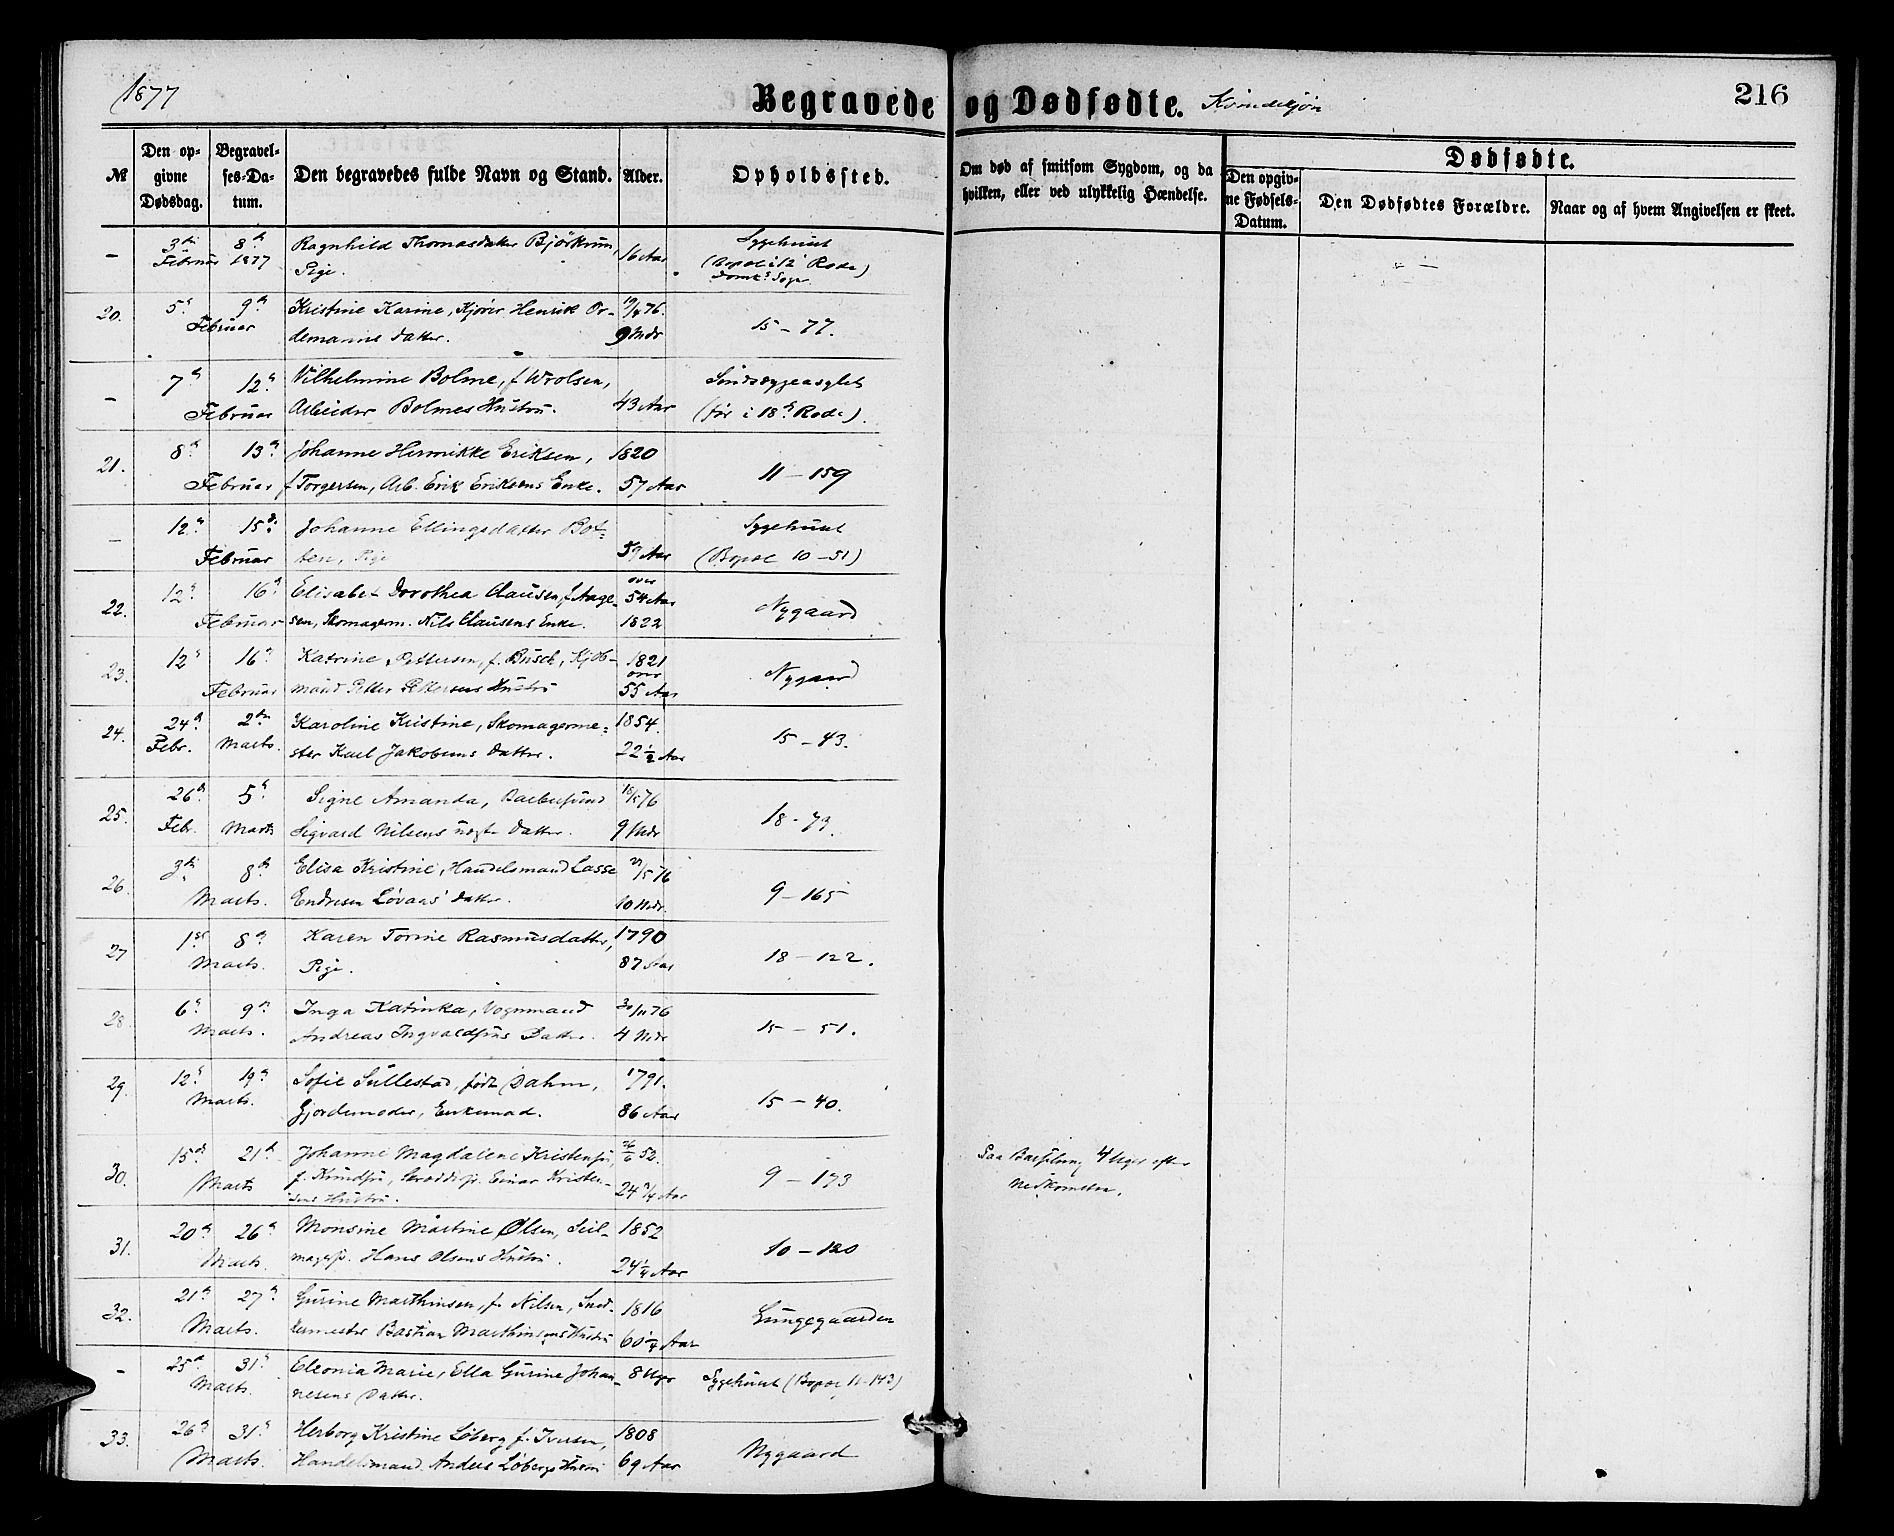 1877
Begravede og Dødfødte. Kvindekjøn
216
№
Den opgivne Dødsdag.
Begravelses-Datum.
Den begravedes fulde Navn og Stand.
Alder.
Opholdssted.
Om død af smitsom Sygdom, og da hvilken, eller ved ulykkelig Hændelse.
Dødfødte.
Den opgivne Fødsels-Datum.
Den Dødfødtes Forældre.
Naar og af hvem Angivelsen er skeet.
– 3die 8de Ragnhild Thomasdatter 16 Aar Sygehuset
Februar 1877 Pige. (Bopæl i 12 Rode)
Domk. Sogn
20. 5te 9de Kristine Karine, Henrik Or- 19/4 76.
Februar demanns Datter. 9 Mdr 15 – 77.
– 7de 12te Vilhelmine Bolme, f. Wrolsen, Sindssygeasylet
Februar Arbeider Bolmes Hustru. 43 Aar (før i 18de Rode).
21. 8de 13de Johanne Hermikke Eriksen, 1820
Februar f. Torgersen, Arb. Erik Eriksens Enke. 57 Aar 11 – 159
– 12te 15de Johanne Ellingsdatter Bot- Sygehuset
Februar ten, Pige 59 Aar (Bopæl 10 – 51)
22. 12te 16de Elisabet Dorothea Clausen, f. Aage- over 54 Aar Nygaard
Februar sen, Skomagerm. Nils Clausens Enke. 1822
23. 12te 16de Katrine Pettersen, f. Busch, Kjøb- 1821 Nygaard
Februar mand Petter Pettersens Hustru over 55 Aar
24. 24de 2den Karoline Kristine, Skomagerme- 1854.
Febr. Marts. ster Karl Jakobsens Datter. 22 1/2 Aar 15 – 43.
25. 26de 5te Signe Amanda, 18/5 76
Febr. Marts Sigvard Nilsens uægte Datter. 9 Mdr 18 – 73.
26. 3die 8de Elisa Kristine, Handelsmand Lasse 27/5 76
Marts. Endresen Løvaas' Datter. 10 Mdr. 9 – 165
27 1ste 8de Karen Tomine Rasmusdatter, 1790
Marts. Pige. 87 Aar 18 – 122.
28. 6te 9de Inga Katinka, Vognmand 30/11 76
Marts. Andreas Ingvaldsens Datter. 4 Mdr 15 – 51.
29 12te 19de Sofie Sullestad, født Dahm, 1791.
Marts. Gjordemoder, Enkemad. 86 Aar 15 – 40.
30. 15de 21de Johanne Magdalene Kristensen, 26/6 52. Paa Barselseng 4 Uger efter
Marts f. Knudsen, Einar Kristen- 24 3/4 Aar 9 – 173 Nedkomsten.
sens Hustru.
31. 20de 26de Monsine Martine Olsen, Seil- 1852
Marts. magersv. Hans Olsens Hustru. 24 1/4 Aar 10 – 120
32. 21de 27de Gurine Marthinsen, f. Nilsen, Sned- 1816 Lungegaarden
Marts. kermester Bastian Marthinsens Hustru 60 1/4 Aar
– 25de 31te Eleonia Marie, Ella Gurine Johan- 8 Uger Sygehuset (Bopæl 11–143)
Marts. nesens Datter.
33. 26de 31te Herborg Kristine Løberg f. Iversen, 1808
Marts. Handelsmand Anders Løbergs Hustru 69 Aar Nygaard